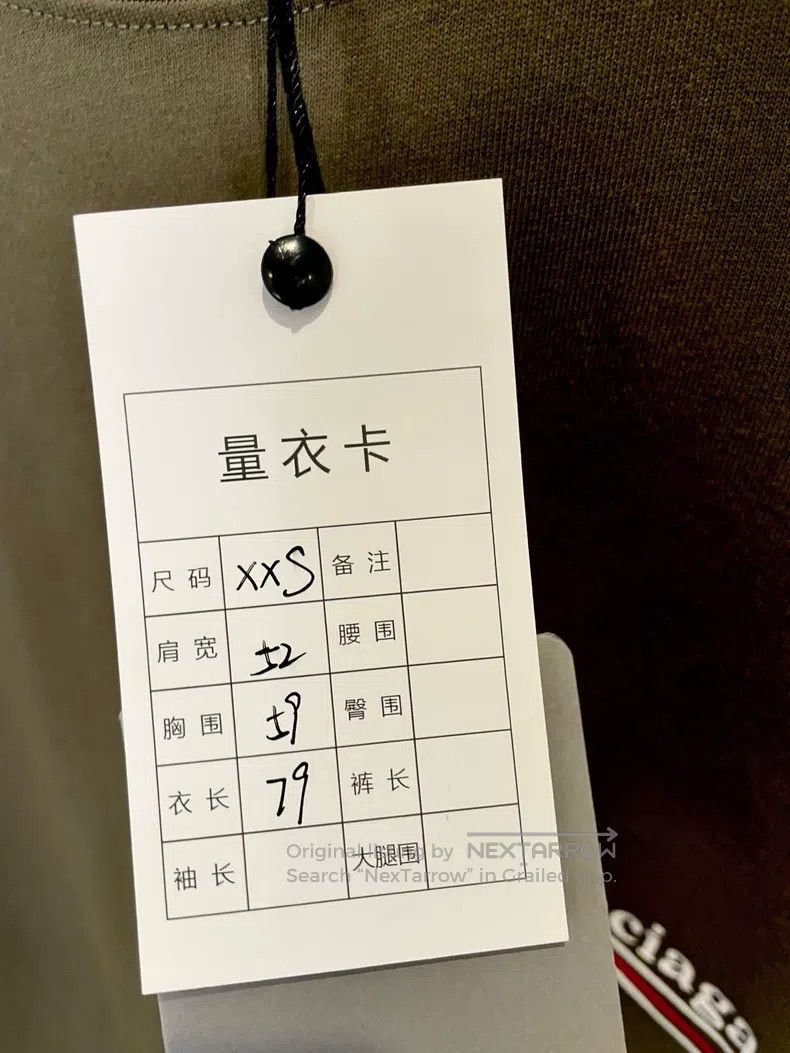 量衣卡
尺码 XXS 备注
肩宽 52 腰围
胸围 59 臀围
衣长 79 裤长
袖长 大腿围
Original listing by NEXTARROW
Search "NexTarrow" in Grailed app.
ciaga